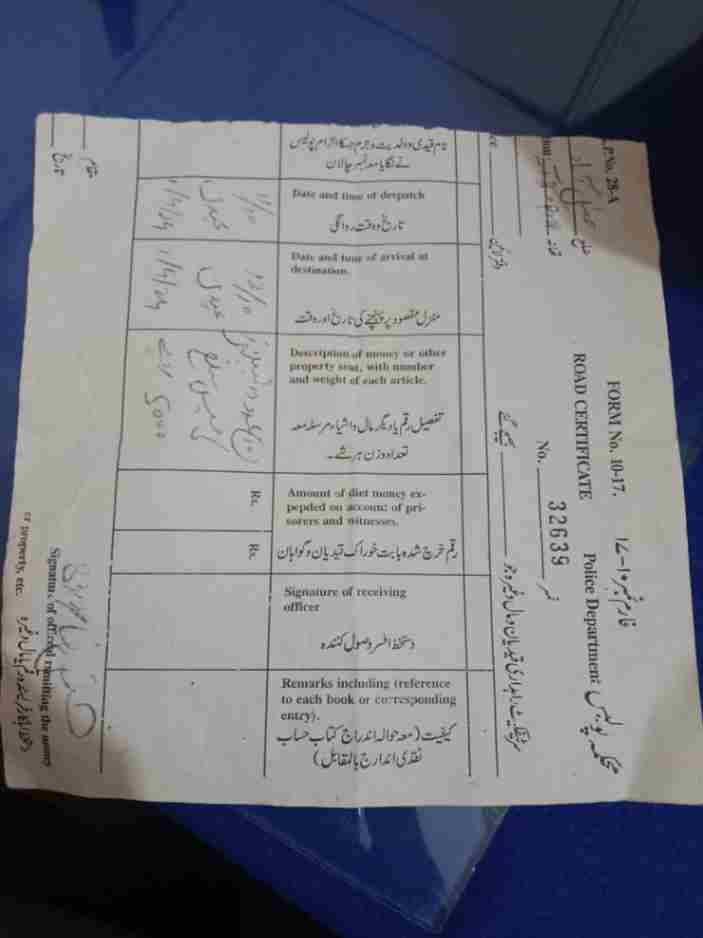 P.No. 28-A
FORM No. 10-17.
فارم نمبر ۱۰-۱۷
ROAD CERTIFICATE
Police Department
محکمہ پولیس
ضلع
No. 32639 نمبر
تھانہ
دفتر لائین
بھیجے گئے
سرٹیفکیٹ راہداری قیدیان و مال وغیرہ جو
نام قیدی و ولدیت و جرم جسکا الزام پولیس
نے لگایا معہ نمبر چالان
Date and time of despatch
تاریخ و وقت روانگی
Date and time of arrival at
destination.
منزل مقصود پر پہنچنے کی تاریخ اور وقت
Description of money or other
property sent, with number
and weight of each article.
تفصیل رقم یا دیگر مال و اشیاء مرسلہ معہ
تعداد وزن ہر شے۔
Amount of diet money ex-
pepded on account of pri-
sorers and witnesses.
رقم خرچ شدہ بابت خوراک قیدیان و گواہان
Signature of receiving
officer
دستخط افسر وصول کنندہ
Remarks including (reference
to each book or corresponding
entry).
کیفیت (معہ حوالہ اندراج کتاب حساب
نقدی اندراج بالمقابل)
1/4/24
1/4/24
5000
Rs.
Rs.
مقام
تاریخ
Signature of officer remitting the money
or property, etc.